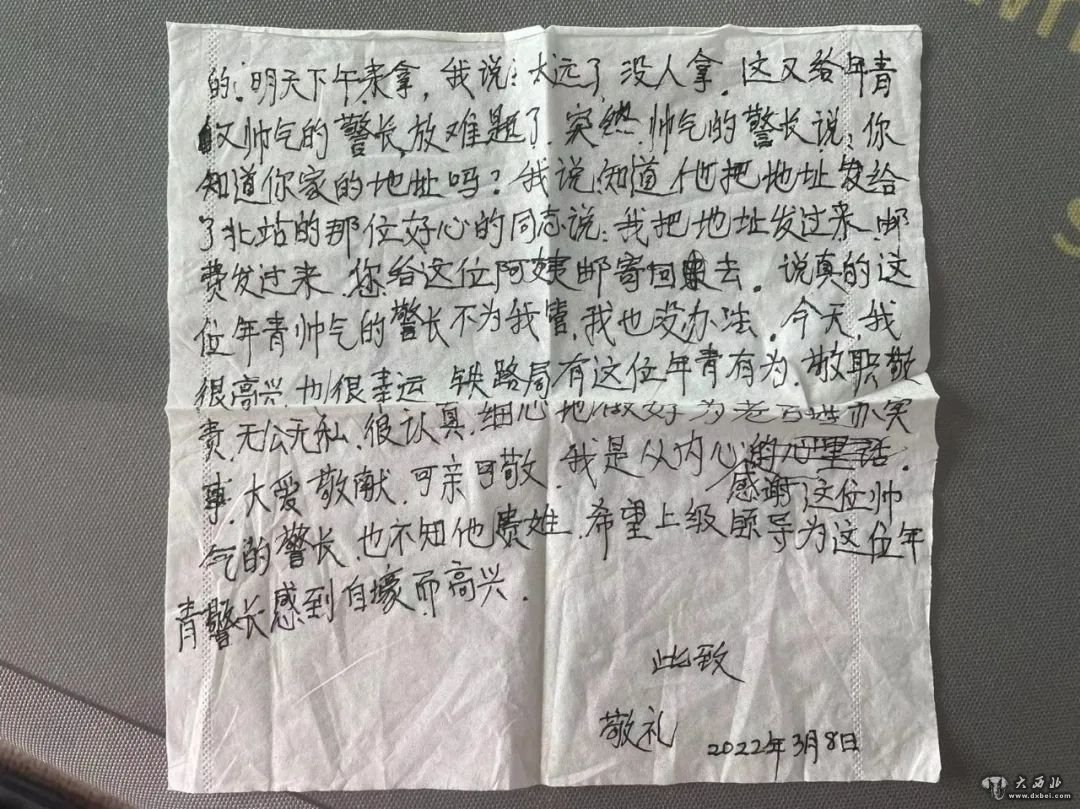 的. 明天下午来拿, 我说: 太远了 没人拿. 这又给年青
又帅气的警长, 放难题了. 突然. 帅气的警长说: 你
知道你家的地址吗? 我说. 知道 他把地址发给
了北站的那位好心的同志说: 我把地址发过来. 邮
费发过来. 您给这位阿姨邮寄回去. 说真的这
位年青帅气的警长不为我管, 我也没办法. 今天, 我
很高兴. 也很幸运. 铁路局有这位年青有为. 敬职敬
责, 无公无私, 很认真, 细心地做好为老百姓办实
事. 大爱敬献. 可亲可敬. 我是从内心
感谢这位帅
气的警长, 也不知他贵姓. 希望上级领导为这位年
青警长感到自壕而高兴.
此致
敬礼
2022年3月8日
大西北
www.dxbei.com